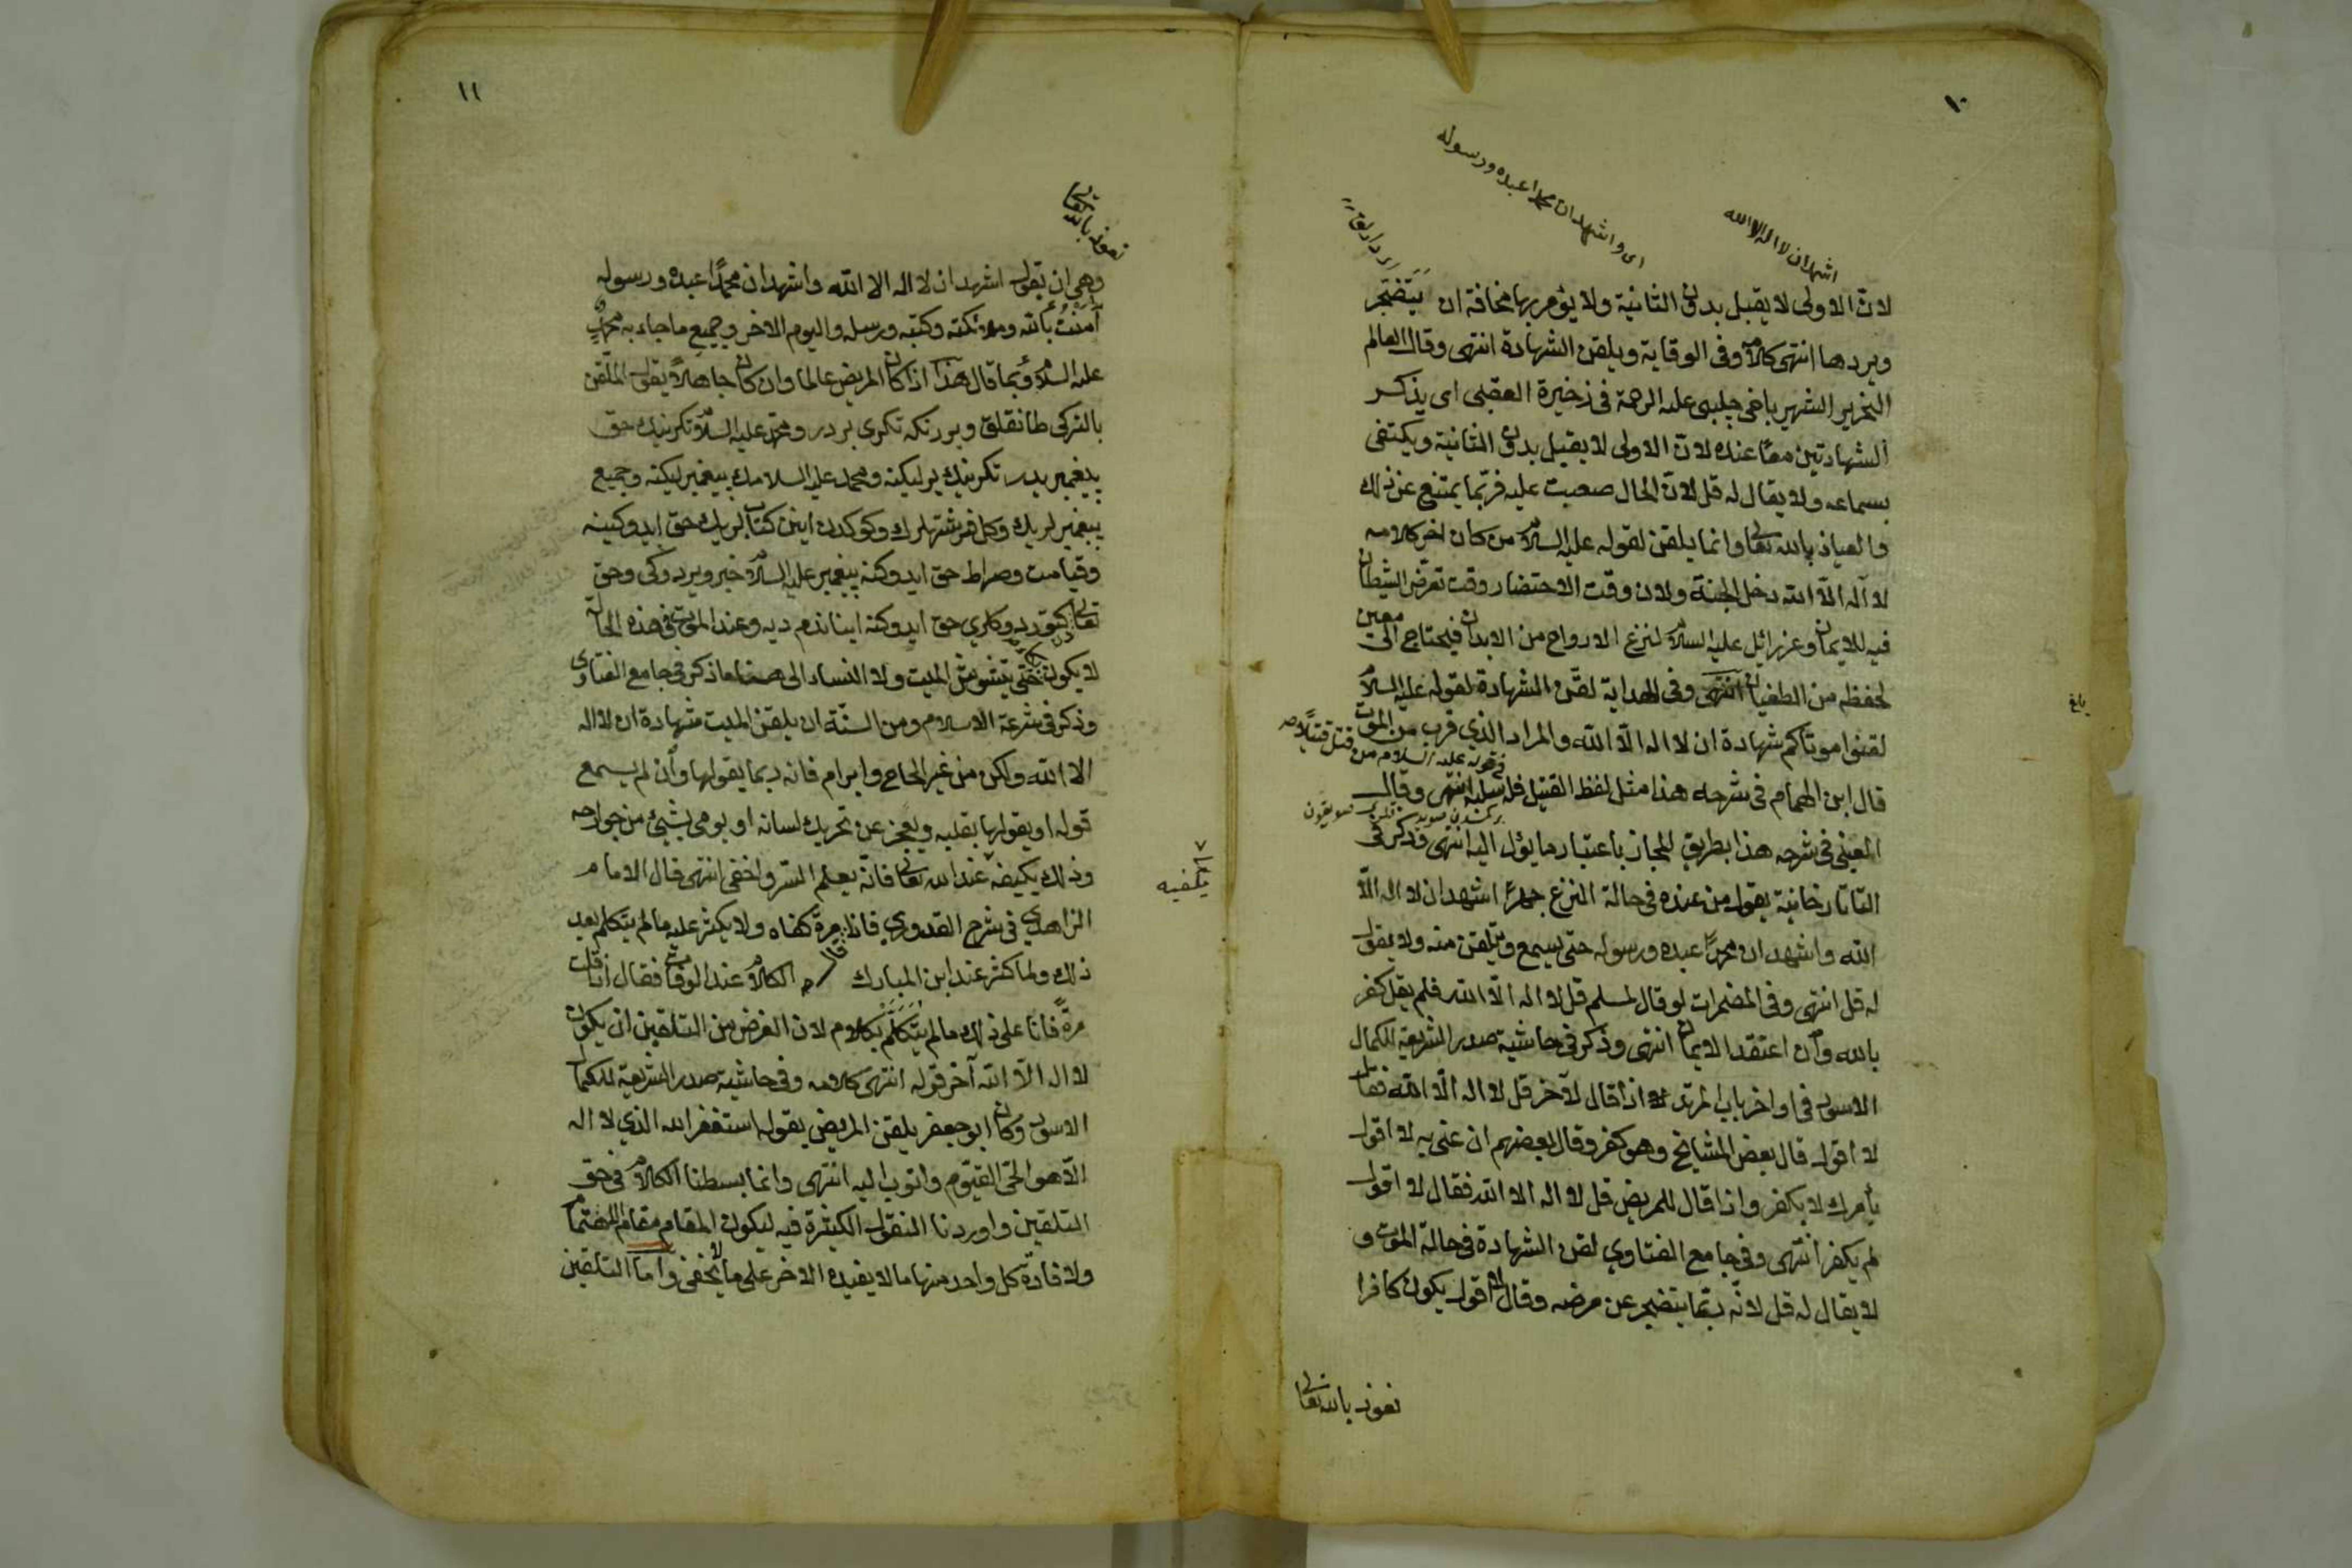 ١٠
اشهد ان لا اله الا الله
اى واشهد ان محمدا عبده ورسوله
لان الاولى لا يقبل بدون الثانية ولا يؤمر بها مخافة ان يتضجر
ويردها انتهى كلامه وفى الوقاية ويلقن الشهادة انتهى وقال العالم
النحرير الشهير باخى چلبى عليه الرحمة فى ذخيرة العقبى اى يذكر
الشهادتين معًا عنده لان الاولى لا يقبل بدون الثانية ويكتفى
بسماعه ولا يقال له قل لان الحال صعبت عليه فربّما يمتنع عن ذلك
والعياذ بالله تعالى وانما يلقن لقوله عليه السلام من كان اخر كلامه
لا اله الا الله دخل الجنة ولان وقت الاحتضار وقت تعرّض الشيطان
فيه للايمان وعزرائيل عليه السلام لنزع الارواح من الابدان فيحتاج الى معين
لحفظه من الطغيان انتهى وفى الهداية لقّن الشهادة لقوله عليه السلام
لقنوا موتاكم شهادة ان لا اله الا الله والمراد الذي قرب من الموت
قال ابن الهمام فى شرحه هذا مثل لفظ القتيل فله سلبه انتهى وقال
فى قوله عليه السلام من قتل قتيلًا
العينى فى شرحه هذا بطريق المجاز باعتبار ما يؤل اليه انتهى وذكر فى
التاتارخانية يقول من عنده فى حالة النزع جهرًا اشهد ان لا اله الّا
الله واشهد ان محمدًا عبده ورسوله حتى يسمع ويتلقن منه ولا يقول
له قل انتهى وفى المضمرات لو قال لمسلم قل لا اله الّا الله فلم يقل كفر
بالله وان اعتقد الايمان انتهى وذكر فى حاشية صدر الشريعة للكمال
الاسود فى اواخر باب المرتد اذا قال لآخر قل لا اله الّا الله فقال
لا اقول قال بعض المشايخ وهو كفر وقال بعضهم ان عنى به لا اقول
بأمرك لا يكفر واذا قال للمريض قل لا اله الا الله فقال لا اقول
لم يكفر انتهى وفى جامع الفتاوي لقن الشهادة فى حالة الموت و
لا يقال له قل لانّه ربّما يتضجر عن مرضه وقال لا اقول يكون كافرا
نعوذ بالله تعالى
١١
نعوذ بالله تعالى
وهى ان يقول اشهد ان لا اله الا الله واشهد ان محمدًا عبده ورسوله
آمنتُ بالله وملائكته وكتبه ورسله واليوم الاخر وجميع ما جاء به محمدٌ
عليه السلام وبما قال هذا اذا كان المريض عالما وان كان جاهلاً يقول الملقن
بالتركى طانقلق ويررنكه تكرى بردر ومحمد عليه السلام تكرينيك حق
پيغمبريدر تكرينيك برليكنه ومحمد عليه السلامك پيغمبرليكنه وجميع
پيغمبرلريك وكل فرشتهلرك وكوكدن اينن كتابلريك حق ايدوكينه
وقيامت وصراط حق ايدوكنه پيغمبر عليه السلام خبر ويردوكى وحق
تعالى حق ايدوكنه ايناندم ديه وعند الموت فى هذه الحالة
لا يكون حتى يتشوش الميت ولا النساء الى ذكر فى جامع الفتاوى
وذكر فى شرعة الاسلام ومن السنّة ان يلقن الميت شهادة ان لا اله
الا الله ولكن من غير الحاح وابرام فانه ربما يقولها وان لم يسمع
قوله او يقولها بقلبه ويعجز عن تحريك لسانه او يومى بشيئ من جوارحه
وذلك يكفيه عند الله تعالى فانّه يعلم السّر واخفى انتهى قال الامام
يكفيه
الزاهدي فى شرح القدوري فاذا قال مرّة كفاه ولا يكثر عليه مالم يتكلم بعد
ذلك ولما كثر عند ابن المبارك الكلام عند الوفاة فقال اذا قلت
مرةً فانا على ذلك مالم يتكلّم بكلام لان الغرض من التلقين ان يكون
لا اله الّا الله آخر قوله انتهى كلامه وفى حاشية صدر الشريعة للكمال
الاسود وكان ابو جعفر يلقن المريض يقول استغفر الله الذي لا اله
الّا هو الحىّ القيّوم واتوب اليه انتهى وانما بسطنا الكلام فى حق
التلقين واوردنا النقول الكثيرة فيه ليكون المقام مقام الاهتمام
ولافادة كل واحد منها ما لا يفيده الاخر على ما لا يخفى وامّا التلقين